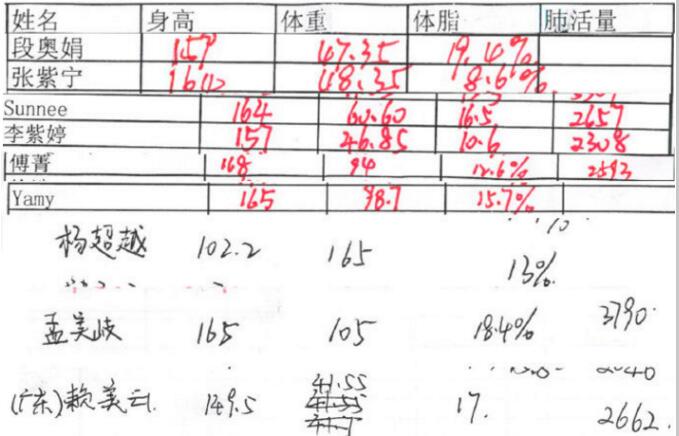 姓名 身高 体重 体脂 肺活量
段奥娟 157 47.35 19.4%
张紫宁 48.35 8.6%
Sunnee 164 60.60 16.5 2657
李紫婷 157 46.85 10.6 2308
傅菁 168 94 2593
Yamy 165 98.7 15.7%
杨超越 102.2 165 13%
孟美岐 165 105 18.4% 3790
(广东)赖美云 149.5 41.55 17. 2662.